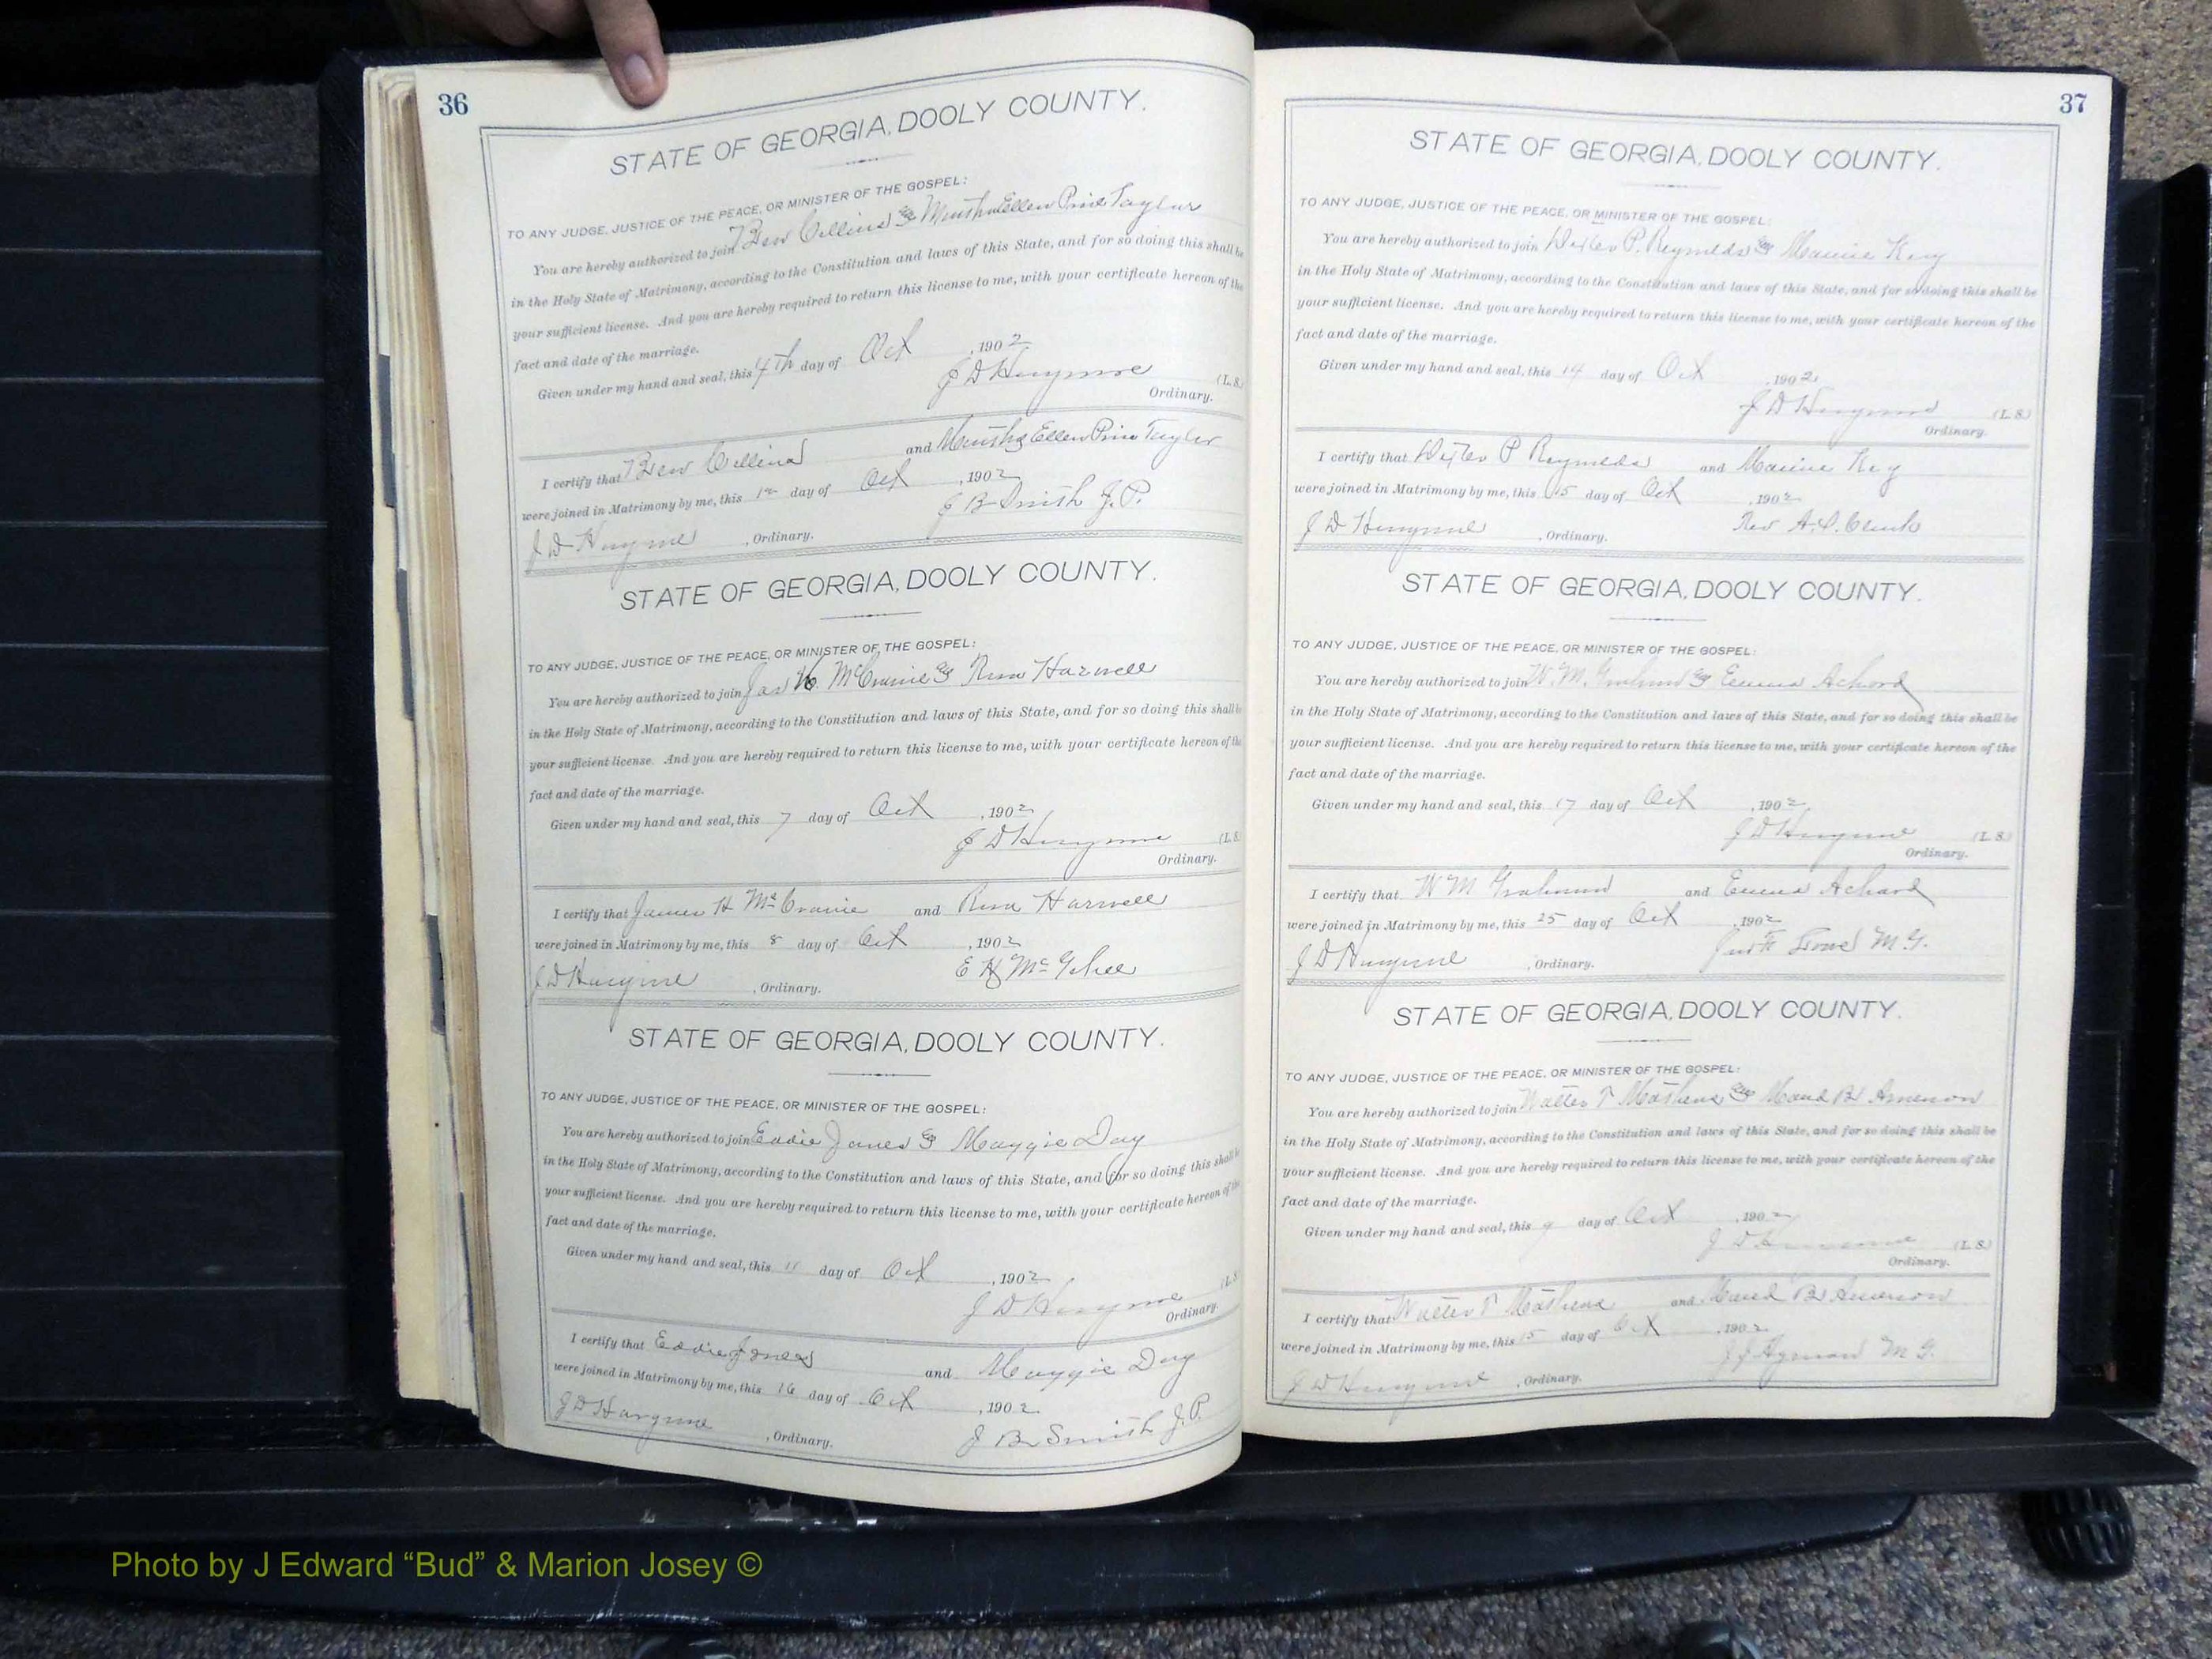 36
STATE OF GEORGIA, DOOLY COUNTY.
TO ANY JUDGE, JUSTICE OF THE PEACE, OR MINISTER OF THE GOSPEL:
You are hereby authorized to join Ben Collins & Ellen Taylor
in the Holy State of Matrimony, according to the Constitution and laws of this State, and for so doing this shall be
your sufficient license. And you are hereby required to return this license to me, with your certificate hereon of the
fact and date of the marriage.
Given under my hand and seal, this 4th day of Oct , 1902
J D Hargrove (L.S.)
Ordinary.
I certify that Ben Collins and Ellen Taylor
were joined in Matrimony by me, this day of Oct , 1902
J D Hargrove , Ordinary. J B Smith J.P.
STATE OF GEORGIA, DOOLY COUNTY.
TO ANY JUDGE, JUSTICE OF THE PEACE, OR MINISTER OF THE GOSPEL:
You are hereby authorized to join Jas H. McCranie & Rosa Harwell
in the Holy State of Matrimony, according to the Constitution and laws of this State, and for so doing this shall b
your sufficient license. And you are hereby required to return this license to me, with your certificate hereon of the
fact and date of the marriage.
Given under my hand and seal, this 7 day of Oct , 1902
J D Hargrove (L.S.
Ordinary.
I certify that James H McCranie and Rosa Harwell
were joined in Matrimony by me, this 8 day of Oct , 1902
J D Hargrove , Ordinary. E H McGehee
STATE OF GEORGIA, DOOLY COUNTY.
TO ANY JUDGE, JUSTICE OF THE PEACE, OR MINISTER OF THE GOSPEL:
You are hereby authorized to join Eddie Jones & Maggie Day
in the Holy State of Matrimony, according to the Constitution and laws of this State, and for so doing this shall b
your sufficient license. And you are hereby required to return this license to me, with your certificate hereon of the
fact and date of the marriage.
Given under my hand and seal, this 11 day of Oct , 1902
J D Hargrove (L.S
Ordinary.
I certify that Eddie Jones and Maggie Day
were joined in Matrimony by me, this 16 day of Oct , 1902
J D Hargrove , Ordinary. J B Smith J.P.
37
STATE OF GEORGIA, DOOLY COUNTY.
TO ANY JUDGE, JUSTICE OF THE PEACE, OR MINISTER OF THE GOSPEL:
You are hereby authorized to join P. Reynolds & Key
in the Holy State of Matrimony, according to the Constitution and laws of this State, and for so doing this shall be
your sufficient license. And you are hereby required to return this license to me, with your certificate hereon of the
fact and date of the marriage.
Given under my hand and seal, this 14 day of Oct , 1902
J D Hargrove (L.S.)
Ordinary.
I certify that P Reynolds and Key
were joined in Matrimony by me, this 15 day of Oct , 1902
J D Hargrove , Ordinary. Rev
STATE OF GEORGIA, DOOLY COUNTY.
TO ANY JUDGE, JUSTICE OF THE PEACE, OR MINISTER OF THE GOSPEL:
You are hereby authorized to join W. M. & Emma Achord
in the Holy State of Matrimony, according to the Constitution and laws of this State, and for so doing this shall be
your sufficient license. And you are hereby required to return this license to me, with your certificate hereon of the
fact and date of the marriage.
Given under my hand and seal, this 17 day of Oct , 1902
J D Hargrove (L.S.)
Ordinary.
I certify that W M and Emma Achord
were joined in Matrimony by me, this 25 day of Oct , 1902
J D Hargrove , Ordinary. M.G.
STATE OF GEORGIA, DOOLY COUNTY.
TO ANY JUDGE, JUSTICE OF THE PEACE, OR MINISTER OF THE GOSPEL:
You are hereby authorized to join Walter T & Maud B
in the Holy State of Matrimony, according to the Constitution and laws of this State, and for so doing this shall be
your sufficient license. And you are hereby required to return this license to me, with your certificate hereon of the
fact and date of the marriage.
Given under my hand and seal, this 9 day of Oct , 1902
J D Hargrove (L.S.)
Ordinary.
I certify that Walter T and Maud B
were joined in Matrimony by me, this 15 day of Oct , 1902
J D Hargrove , Ordinary. M G.
Photo by J Edward “Bud” & Marion Josey ©